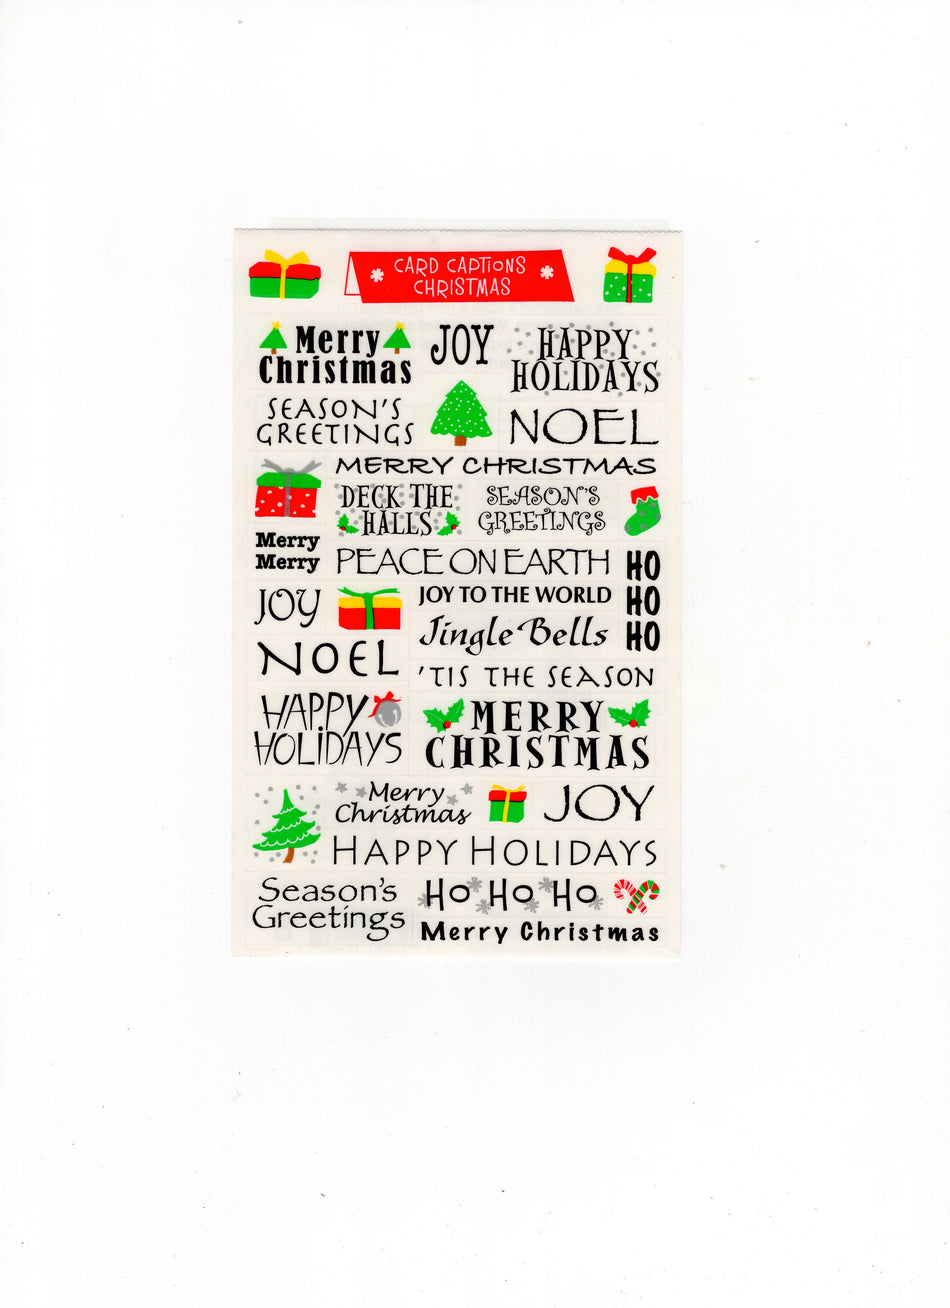 CARD CAPTIONS
CHRISTMAS
Merry
Christmas
JOY
HAPPY
HOLIDAYS
SEASON'S
GREETINGS
NOEL
MERRY CHRISTMAS
DECK THE
HALLS
SEASON'S
GREETINGS
Merry
Merry
PEACE ON EARTH
HO
HO
HO
JOY
JOY TO THE WORLD
Jingle Bells
NOEL
'TIS THE SEASON
HAPPY
HOLIDAYS
MERRY
CHRISTMAS
Merry
Christmas
JOY
HAPPY HOLIDAYS
Season's
Greetings
HO HO HO
Merry Christmas